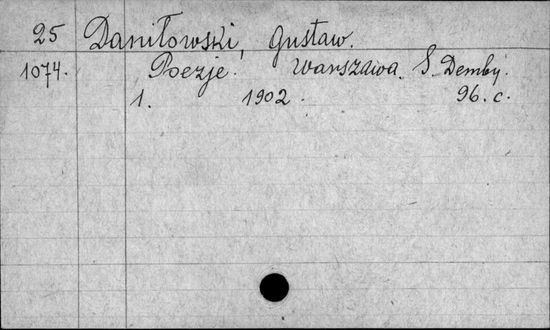 25 Daniłowski, Gustaw.
1074. Poezje. Warszawa. S. Demby.
1. 1902. 96. c.